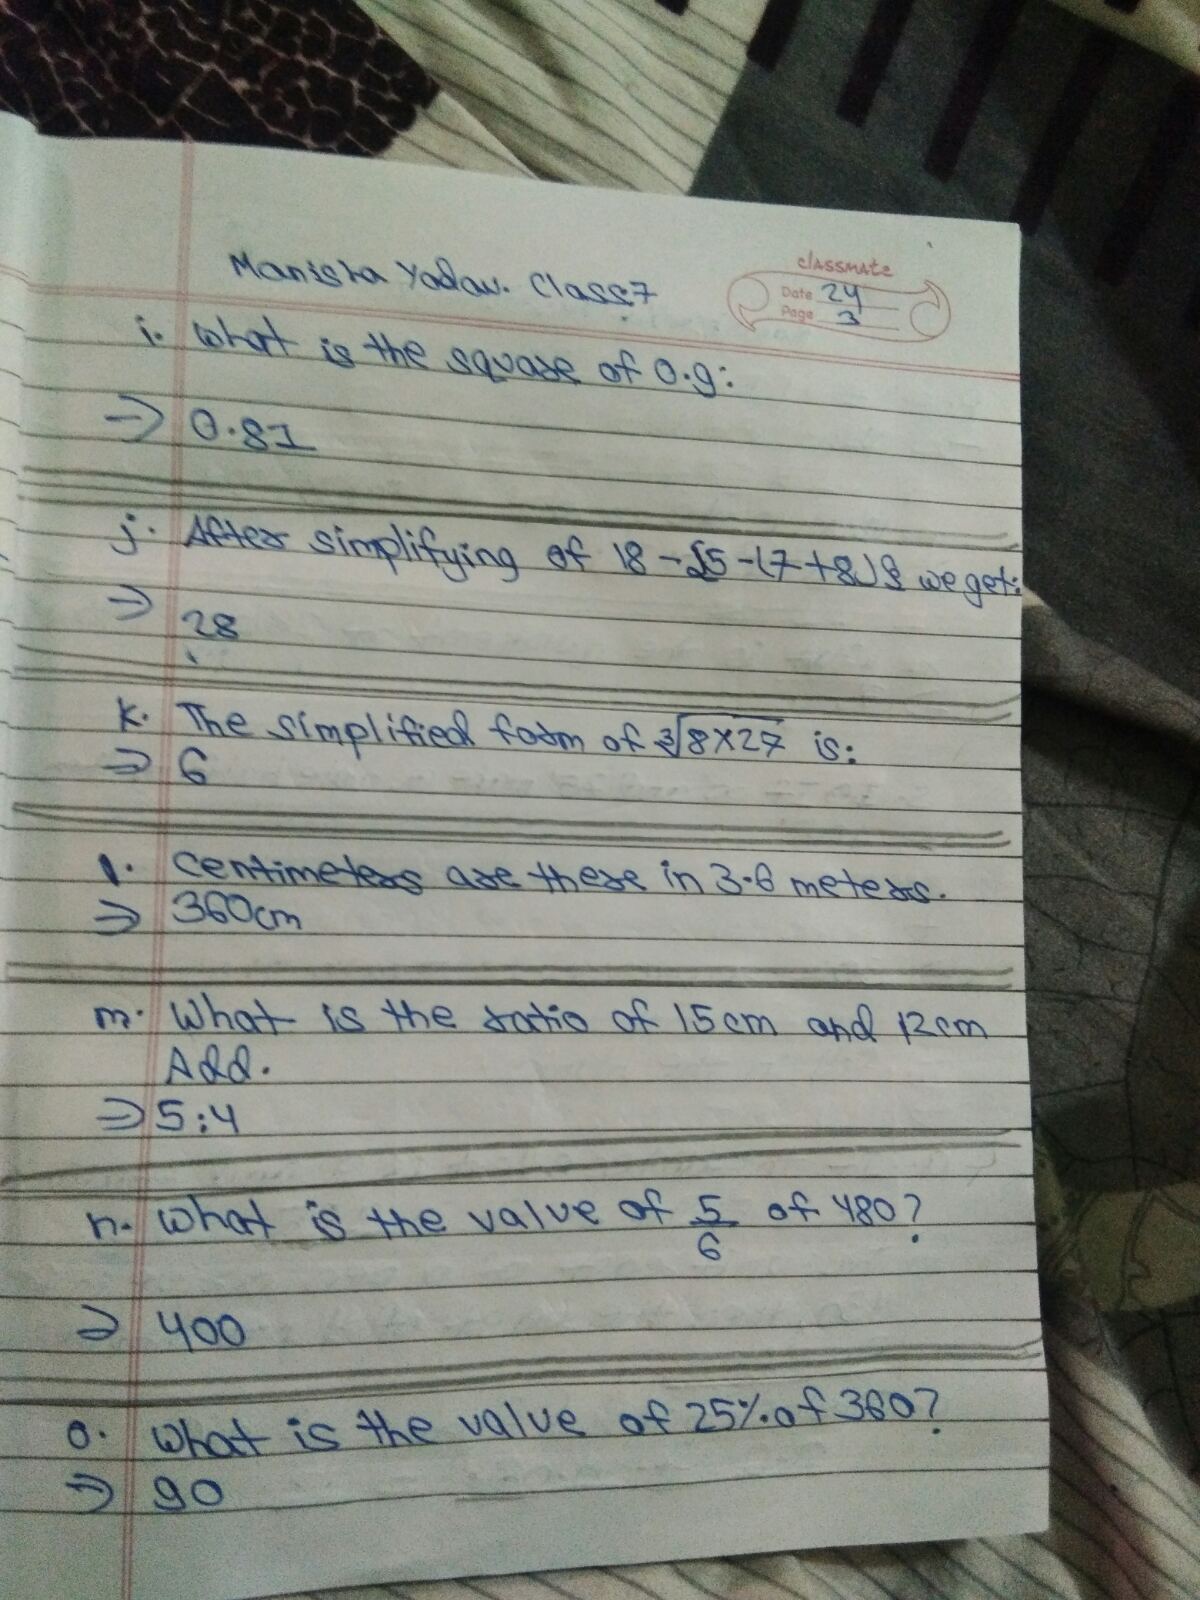 Manisha Yadav. Class:7
classmate
Date 24
Page 3
i. What is the square of 0.9:
⇒ 0.81
j. After simplifying of 18-{5-(7+8)} we get:
⇒ 28
k. The simplified form of ∛8×27 is:
⇒ 6
l. Centimeters are there in 3.6 meters.
⇒ 360cm
m. What is the ratio of 15cm and 12cm
Add.
⇒ 5:4
n. What is the value of 5/6 of 480?
⇒ 400
o. What is the value of 25% of 360?
⇒ 90